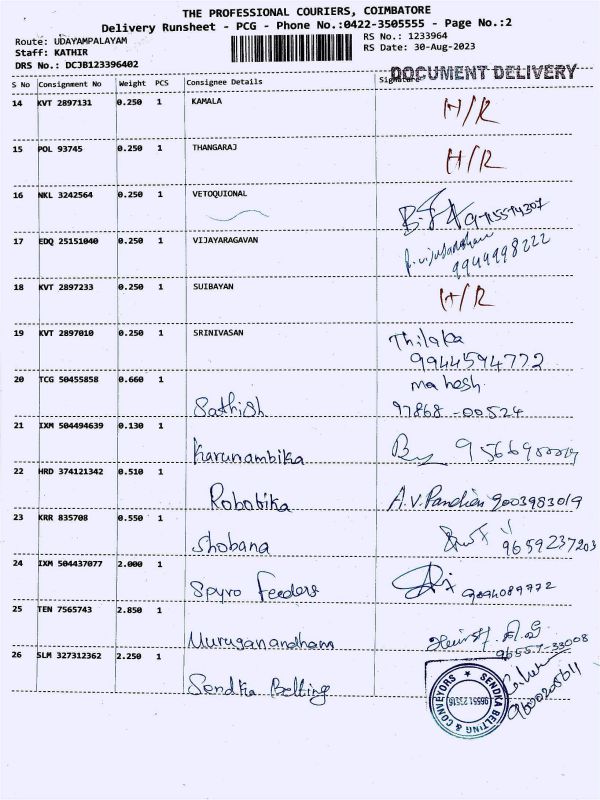 THE PROFESSIONAL COURIERS, COIMBATORE
Delivery Runsheet - PCG - Phone No.:0422-3505555 - Page No.:2
Route: UDAYAMPALAYAM
Staff: KATHIR
DRS No.: DCJB123396402
RS No.: 1233964
RS Date: 30-Aug-2023
DOCUMENT DELIVERY
S No Consignment No Weight PCS Consignee Details Signature
14 KVT 2897131 0.250 1 KAMALA H/R
15 POL 93745 0.250 1 THANGARAJ H/R
16 NKL 3242564 0.250 1 VETOQUIONAL
17 EDQ 25151040 0.250 1 VIJAYARAGAVAN 9944998222
18 KVT 2897233 0.250 1 SUIBAYAN H/R
19 KVT 2897010 0.250 1 SRINIVASAN Thilaka
9944594772
20 TCG 50455858 0.660 1 Sathish mahesh
97868-00524
21 IXM 504494639 0.130 1 Karunambika
22 HRD 374121342 0.510 1 Robotika A.V.Pandian 9003983019
23 KRR 835708 0.550 1 Shobana 9659237203
24 IXM 504437077 2.000 1 Spyro Feeders 9094089772
25 TEN 7565743 2.850 1 Muruganandham 96557-33008
26 SLM 327312362 2.250 1 Sendka Belting
SENDKA BELTING & CONVEYORS